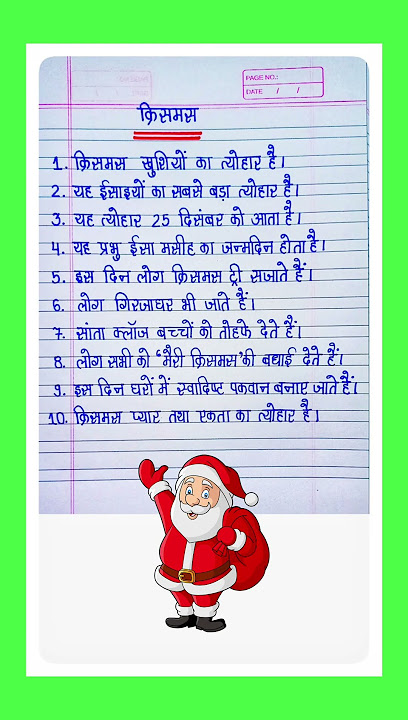 PAGE NO.:
DATE / /
क्रिसमस
1. क्रिसमस खुशियों का त्योहार है।
2. यह ईसाइयों का सबसे बड़ा त्योहार है।
3. यह त्योहार 25 दिसंबर को आता है।
4. यह प्रभु ईसा मसीह का जन्मदिन होता है।
5. इस दिन लोग क्रिसमस ट्री सजाते हैं।
6. लोग गिरजाघर भी जाते हैं।
7. सांता क्लॉज बच्चों को तोहफे देते हैं।
8. लोग सभी को 'मैरी क्रिसमस' की बधाई देते हैं।
9. इस दिन घरों में स्वादिष्ट पकवान बनाए जाते हैं।
10. क्रिसमस प्यार तथा एकता का त्योहार है।